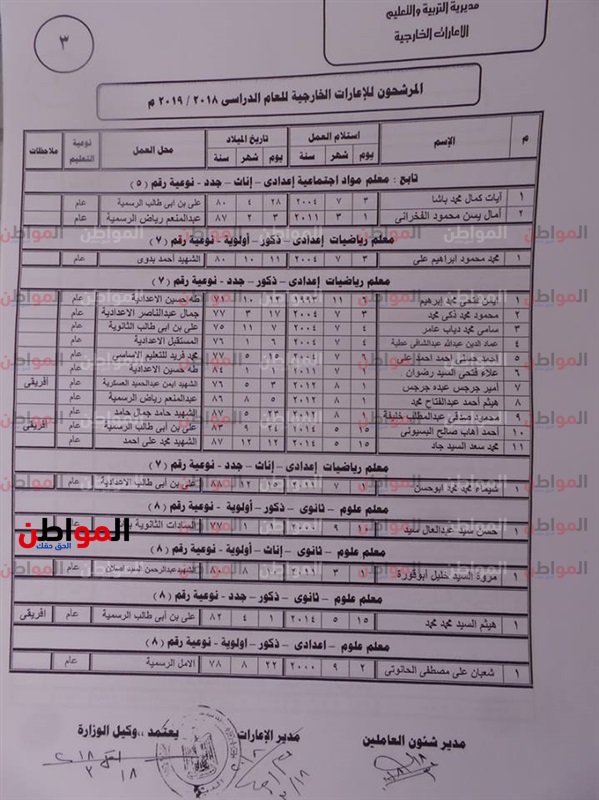 مديرية التربية والتعليم
الاعارات الخارجية
٣
المرشحون للإعارات الخارجية للعام الدراسى ٢٠١٨ / ٢٠١٩ م
م الإسم استلام العمل تاريخ الميلاد محل العمل نوعية التعليم ملاحظات
يوم شهر سنة يوم شهر سنة
تابع : معلم مواد اجتماعية إعدادى – إناث – جدد – نوعية رقم (٥)
١ آيات كمال محمد باشا ٣ ٧ ٢٠٠٤ ٢٨ ٤ ٨٠ على بن ابى طالب الرسمية عام
٢ آمال يسن محمود الفخرانى ١ ٣ ٢٠١١ ٣ ٢ ٨٧ عبدالمنعم رياض الرسمية عام
معلم رياضيات إعدادى – ذكور – أولوية – نوعية رقم (٧)
١ محمد محمود ابراهيم على ٣ ٧ ٢٠٠٤ ١١ ١٠ ٨٠ الشهيد أحمد بدوى عام
معلم رياضيات إعدادى – ذكور – جدد – نوعية رقم (٧)
١ فتحى محمد إبرهيم ٦ ١١ ١٠ ٧١ طه حسين الاعدادية عام
٢ محمود محمد ذكى محمد ٣ ٧ ٢٠٠٤ ١٧ ٣ ٧٧ جمال عبدالناصر الاعدادية عام
٣ سامى محمد دياب عامر ٤ ٧ ٢٠٠٤ ١١ ٧ ٧٥ على بن ابى طالب الثانوية عام
٤ عماد الدين عبدالله عبدالشافى عطية ٤ ٧ ٢٠٠٤ ٦ ١ ٧٦ المستقبل الاعدادية عام
٥ احمد احمد على ٦ ٧ محمد فريد للتعليم الاساسى عام
٦ علاء فتحى السيد رضوان ١ ٧ ١ ١ ٨٤ طه حسين الاعدادية عام
٧ أمير جرجس عبده جرجس ١ ٨ ٢٠١٢ ٨ ٣ ٨٦ الشهيد ايمن عبدالحميد العسكرية عام أفريقى
٨ هيثم أحمد عبدالفتاح محمد ١ ٨ ٢٠١٢ ٥ ٨ ٨٦ عبدالمنعم رياض الرسمية عام
٩ محمود عبدالمطلب خليفة ٩ ٨ ٢٠١٢ ٢٣ ٥ ٧٦ الشهيد حامد جمال حامد عام
١٠ أحمد أهاب صالح البسيونى ١٥ ٥ ٢٠١٤ ٢٤ ٩ ٨٣ على بن ابى طالب الرسمية عام أفريقى
١١ محمد سعد السيد جاد ١٥ ٥ ٢٠١٤ ١٢ ١٢ ٨٧ الشهيد محمد على احمد عام
معلم رياضيات إعدادى – إناث – جدد – نوعية رقم (٧)
١ شيماء محمد محمد ابوحسن ١ ٧ ١٥ ١٢ ٨٨ على بن ابى طالب الاعدادية عام
معلم علوم – ثانوى – ذكور – أولوية – نوعية رقم (٨)
١ حسن سيد عبدالعال سيد ١ ٩ ١ ١ ٧٧ السادات الثانوية
معلم علوم – ثانوى – إناث – أولوية – نوعية رقم (٨)
١ مروة السيد خليل ابوقورة ١ ٣ ٨ ٨٠ الشهيد عبدالرحمن السيد عام
معلم علوم – ثانوى – ذكور – جدد – نوعية رقم (٨)
١ هيثم السيد محمد محمد ١٥ ٥ ٢٠١٤ ١ ٤ ٨٢ على بن أبى طالب الرسمية عام افريقى
معلم علوم – اعدادى – ذكور – اولوية – نوعية رقم (٨)
١ شعبان على مصطفى الحانوتى ٢ ٩ ٢٠٠٠ ٢٢ ٨ ٧٨ الامل الرسمية عام
المواطن
الحق حقك
مدير شئون العاملين مدير الإعارات يعتمد ،، وكيل الوزارة